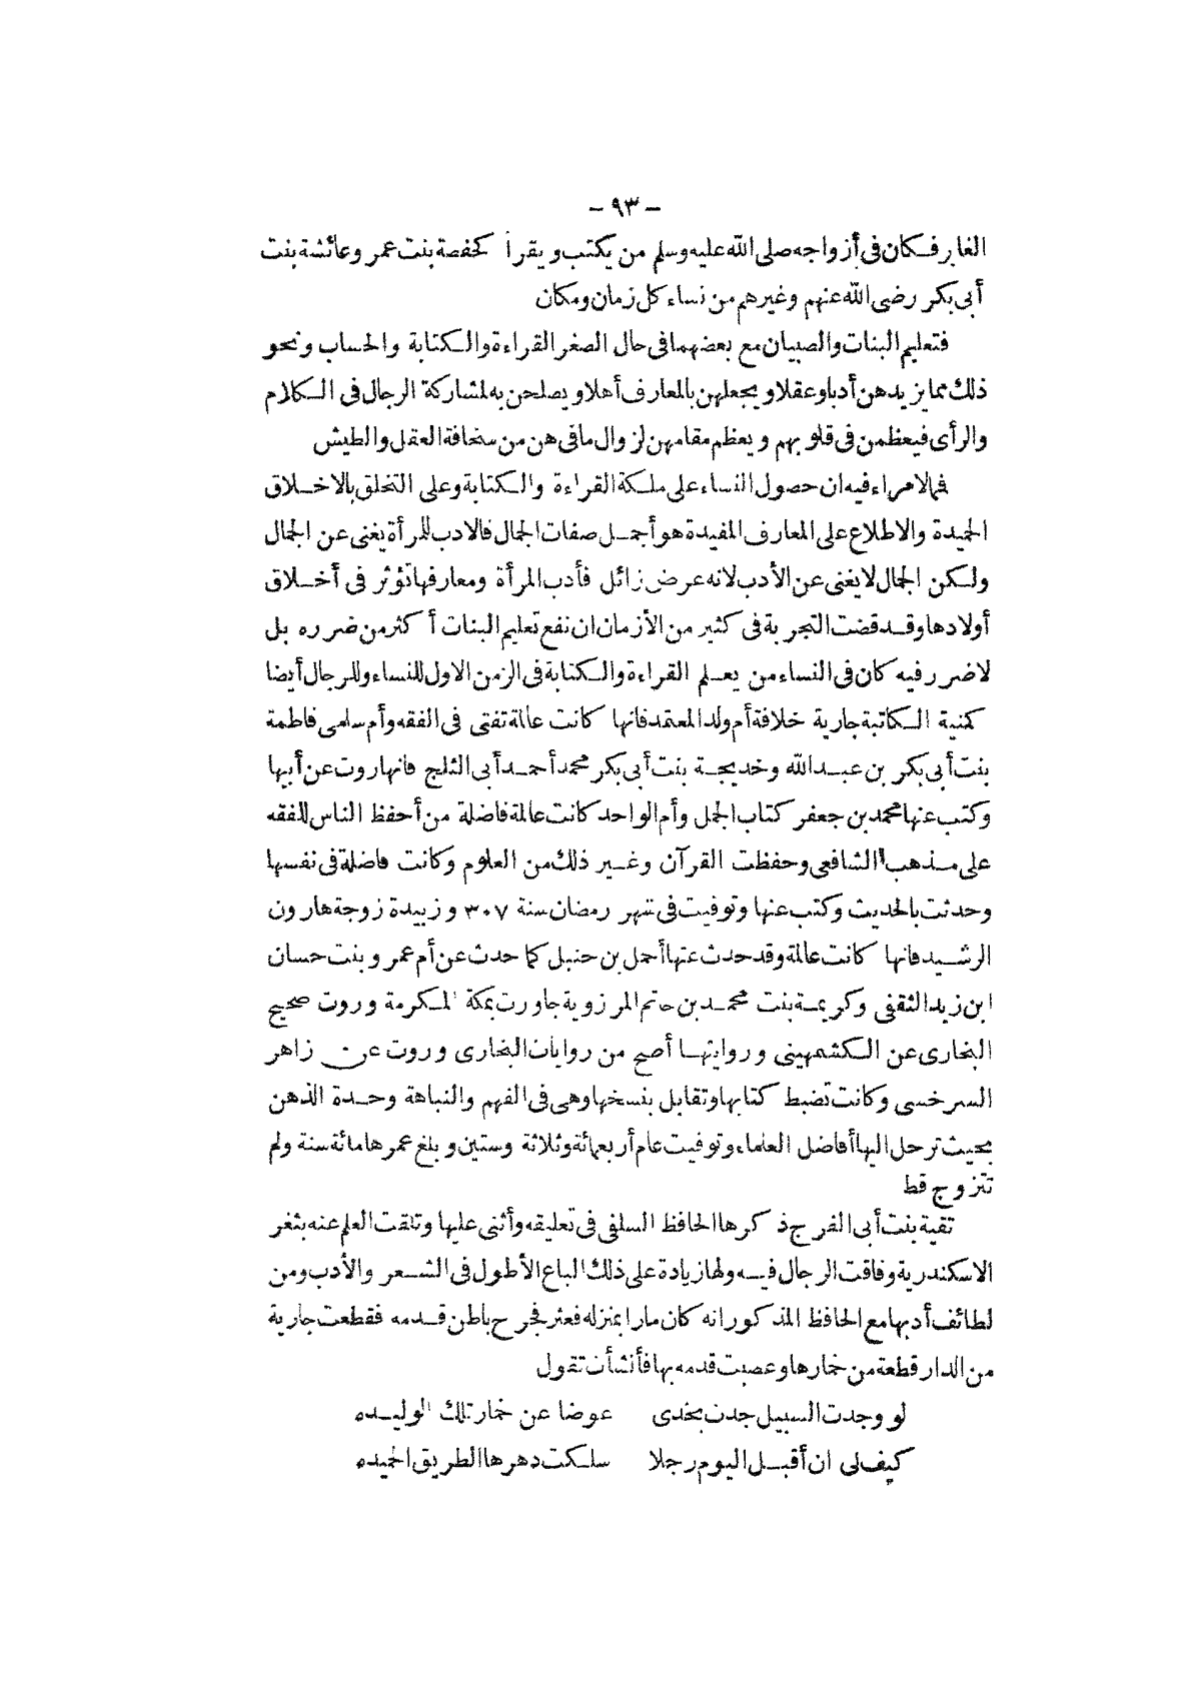 - ٩٣ -
الغابر فكان فى أزواجه صلى الله عليه وسلم من يكتب ويقرأ كحفصة بنت عمر وعائشة بنت
أبى بكر رضى الله عنهم وغيرهم من نساء كل زمان ومكان
فتعليم البنات والصبيان مع بعضهما فى حال الصغر القراءة والكتابة والحساب ونحو
ذلك مما يزيدهن أدبا وعقلا ويجعلهن بالمعارف أهلا ويصلحن به لمشاركة الرجال فى الكلام
والرأى فيعظمن فى قلوبهم ويعظم مقامهن لزوال ما فى هن من سخافة العقل والطيش
فما لامراء فيه ان حصول النساء على ملكة القراءة والكتابة وعلى التخلق بالاخلاق
الحميدة والاطلاع على المعارف المفيدة هو أجمل صفات الجمال فالادب للمرأة يغنى عن الجمال
ولكن الجمال لا يغنى عن الأدب لانه عرض زائل فأدب المرأة ومعارفها تؤثر فى أخلاق
أولادها وقد قضت التجربة فى كثير من الأزمان ان نفع تعليم البنات أكثر من ضرره بل
لا ضرر فيه كان فى النساء من يعلم القراءة والكتابة فى الزمن الاول للنساء وللرجال أيضا
كمنية الكاتبة جارية خلافة أم ولد المعتمد فانها كانت عالمة تفتى فى الفقه وأم سلمى فاطمة
بنت أبى بكر بن عبد الله وخديجة بنت أبى بكر محمد أحمد أبى الثلج فانها روت عن أبيها
وكتب عنها محمد بن جعفر كتاب الجمل وأم الواحد كانت عالمة فاضلة من أحفظ الناس للفقه
على مذهب الشافعى وحفظت القرآن وغير ذلك من العلوم وكانت فاضلة فى نفسها
وحدثت بالحديث وكتب عنها وتوفيت فى شهر رمضان سنة ٣٠٧ وزبيدة زوجة هارون
الرشيد فانها كانت عالمة وقد حدث عنها أحمل بن حنبل كما حدث عن أم عمر وبنت حسان
ابن زيد الثقفى وكريمة بنت محمد بن حاتم المرزوية جاورت بمكة المكرمة وروت صحيح
البخارى عن الكشمهينى وروايتها أصح من روايات البخارى وروت عن زاهر
السرخسى وكانت تضبط كتابها وتقابل بنسخها وهى فى الفهم والنباهة وحدة الذهن
بحيث ترحل اليها أفاضل العلماء وتوفيت عام أربعمائة وثلاثة وستين وبلغ عمرها مائة سنة ولم
تتزوج قط
تقية بنت أبى الفرج ذكرها الحافظ السلفى فى تعليقه وأثنى عليها وتلقت العلم عنه بثغر
الاسكندرية وفاقت الرجال فيه ولها زيادة على ذلك الباع الأطول فى الشعر والأدب ومن
لطائف أدبها مع الحافظ المذكور انه كان مارا بمنزله فعثر فجرح باطن قدمه فقطعت جارية
من الدار قطعة من خمارها وعصبت قدمه بها فأنشأت تقول
لو وجدت السبيل جدت بخدى عوضا عن خمار تلك الوليده
كيف لى ان أقبل اليوم رجلا سلكت دهرها الطريق الحميده